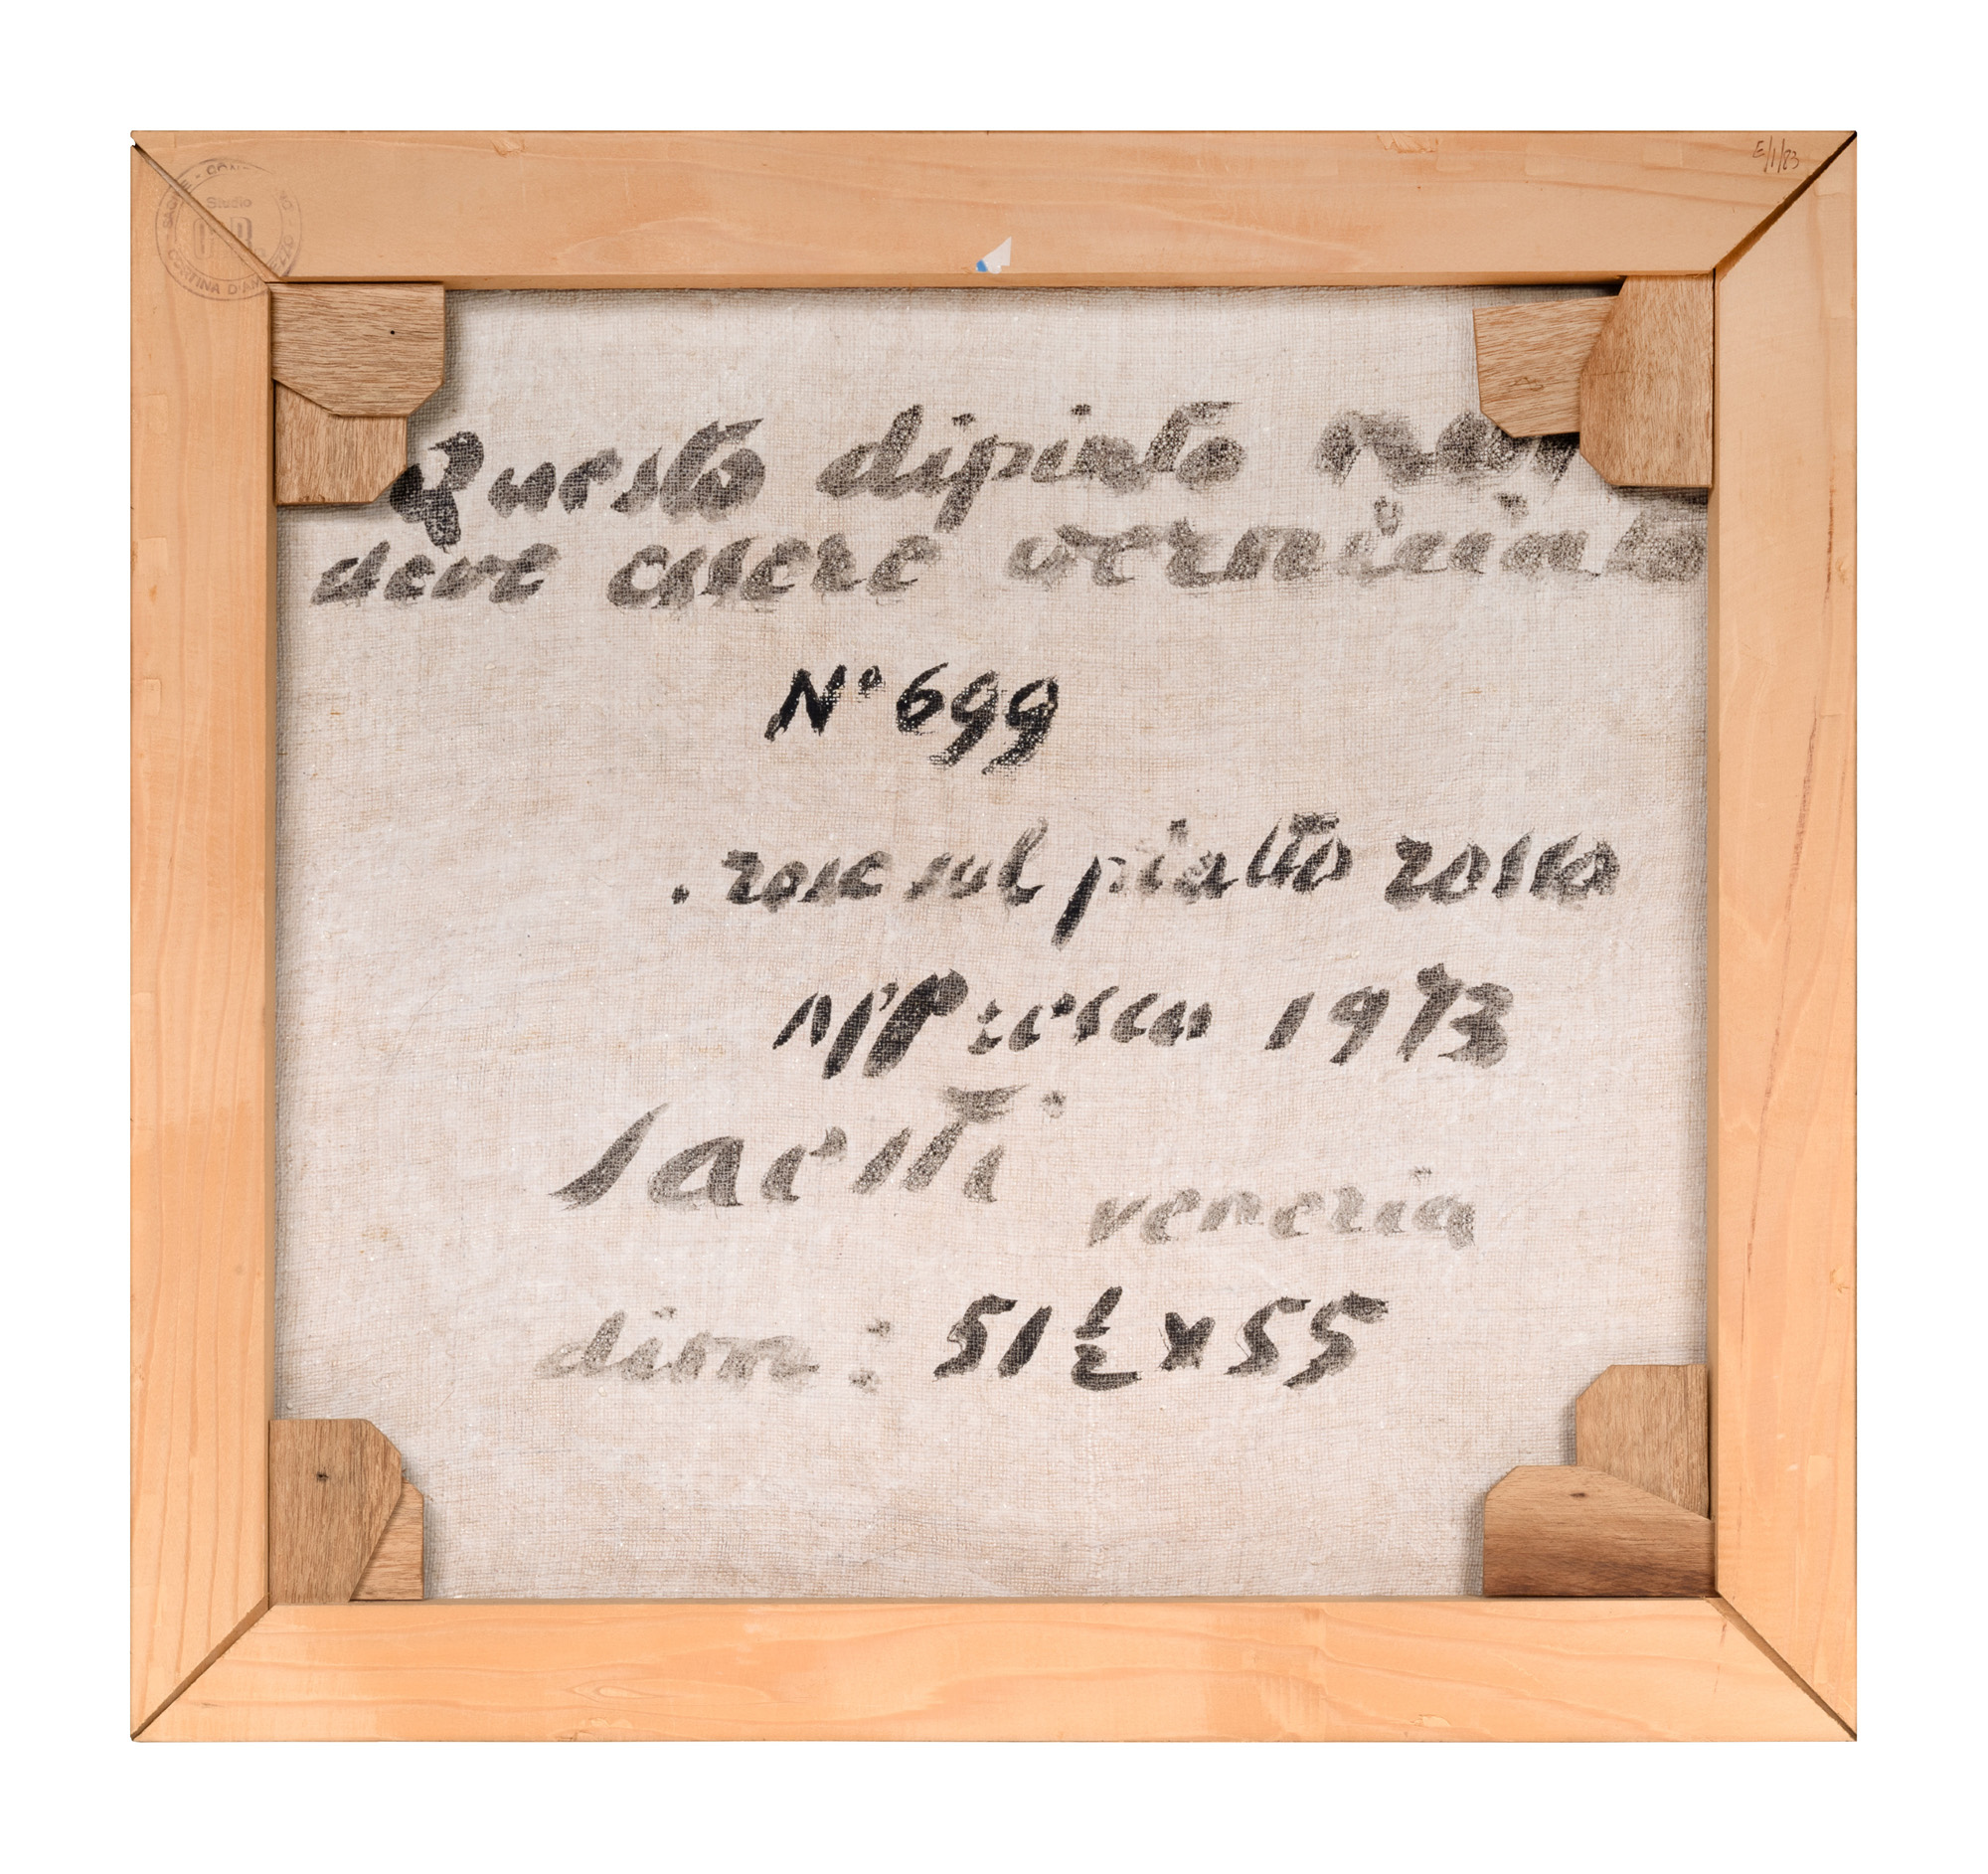 Studio
CORTINA D'AMPEZZO
E/1/83
Questo dipinto non
deve essere verniciato
N° 699
. rose sul piatto rosso
affresco 1973
Saetti
venezia
dim : 51 1/2 x 55